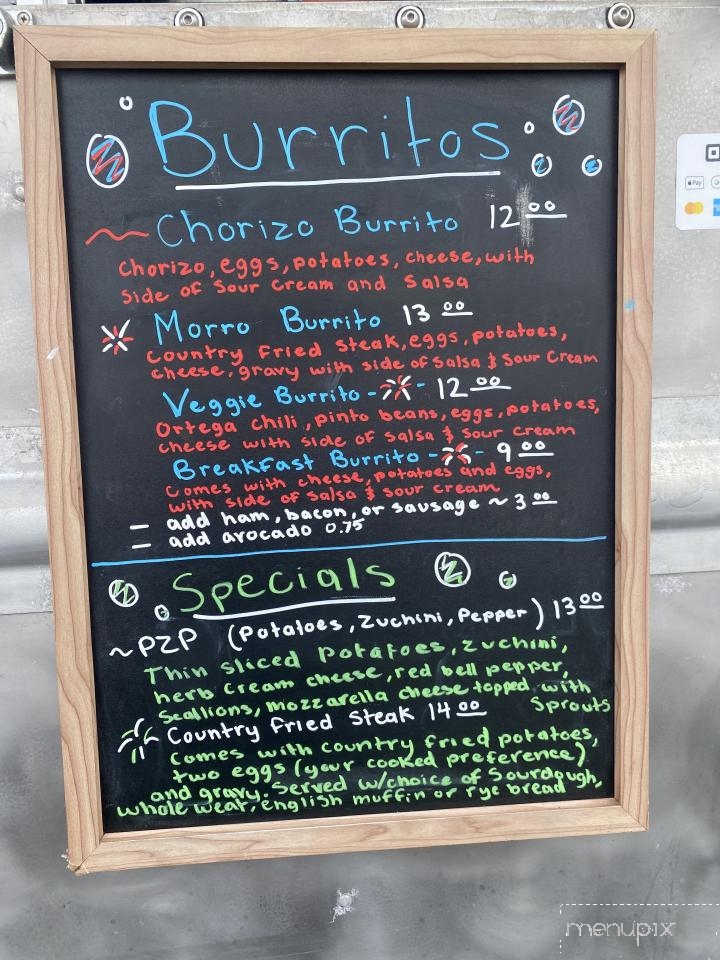 Burritos
Chorizo Burrito 12 00
Chorizo, eggs, potatoes, cheese, with
side of Sour Cream and Salsa
Morro Burrito 13 00
Country Fried Steak, eggs, potatoes,
cheese, gravy with side of Salsa & Sour Cream
Veggie Burrito - - 12 00
Ortega Chili, pinto beans, eggs, potatoes,
cheese with side of salsa & sour cream
Breakfast Burrito - - 9 00
Comes with cheese, potatoes and eggs,
with side of salsa & sour cream
— add ham, bacon, or sausage ~ 3 00
— add avocado 0.75
Specials
~ PZP (Potatoes, Zuchini, Pepper) 13 00
Thin sliced potatoes, zuchini,
herb cream cheese, red bell pepper,
Scallions, mozzarella cheese topped with
Sprouts
Country Fried Steak 14 00
Comes with country fried potatoes,
two eggs (your cooked preference)
and gravy. Served w/choice of Sourdough,
whole wear, english muffin or rye bread
Pay
menupix